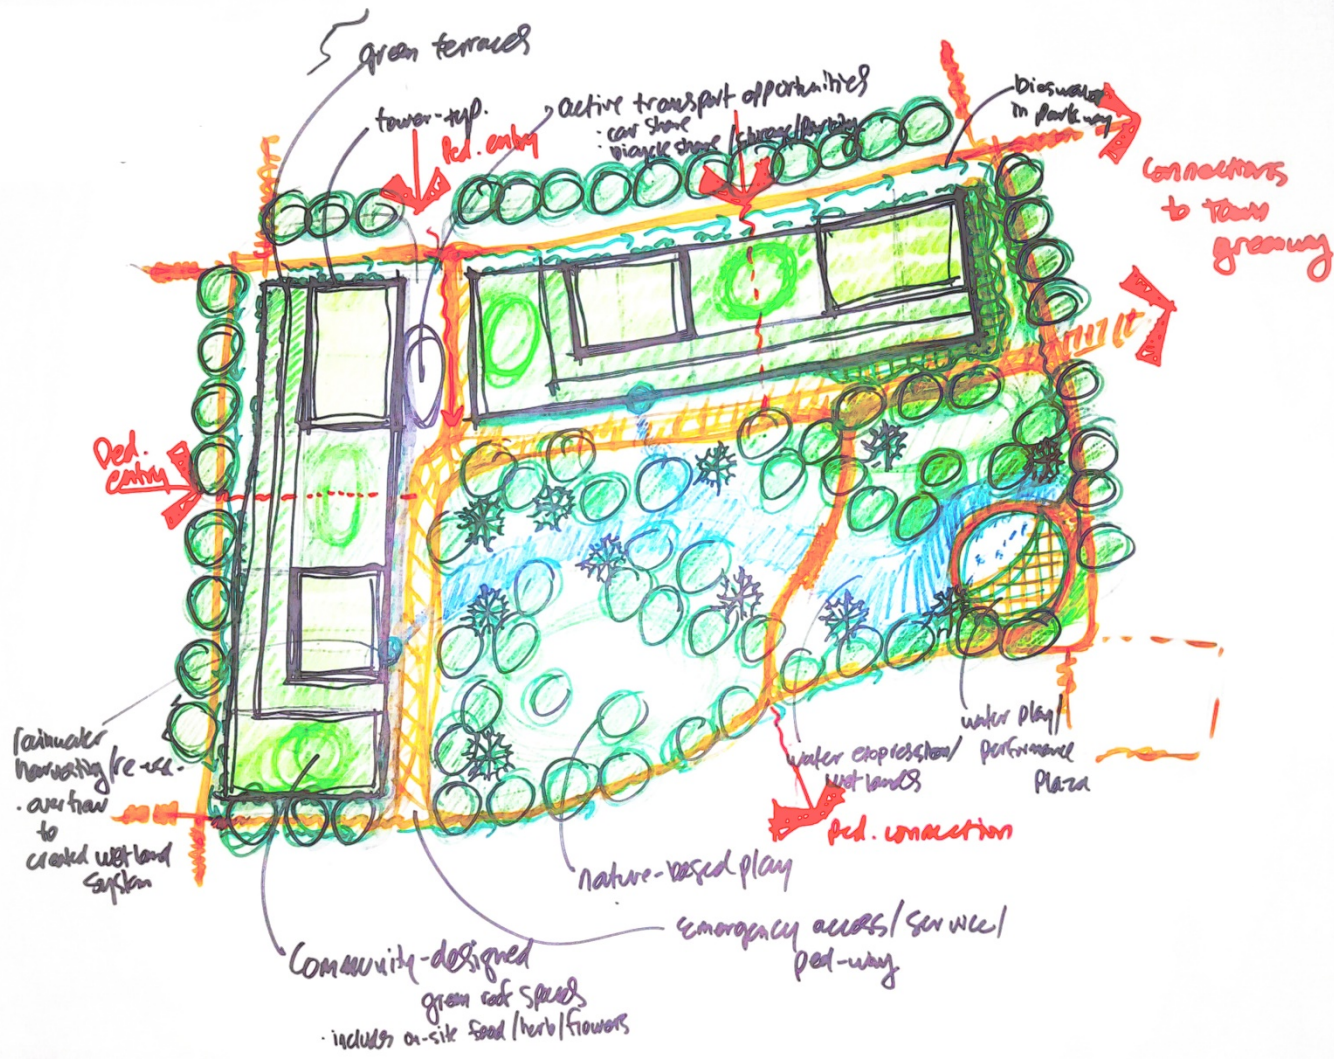 green terraces
tower-typ.
Ped. entry
active transport opportunities
· car share
· bicycle share / storage/parking
Bioswales
in parkway
connections
to town
greenway
Ped.
entry
rainwater
harvesting/re-use.
· overflow
to
created wetland
system
water play/
performance
Plaza
water expression/
wetlands
Ped. connection
nature-based play
Emergency access/service/
ped-way
Community-designed
green roof spaces
· includes on-site food/herb/flowers